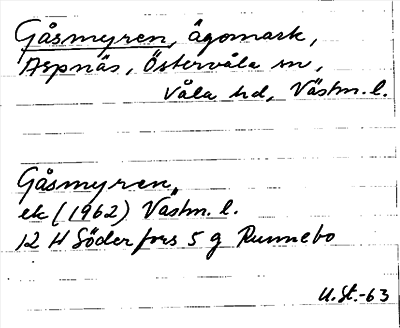 Gåsmyren, ägomark,
Aspnäs, Östervåla sn,
Våla hd, Västm. l.
Gåsmyren,
ek (1962) Västm. l.
12 H Söderfors 5 g Runnebo
U.St.-63